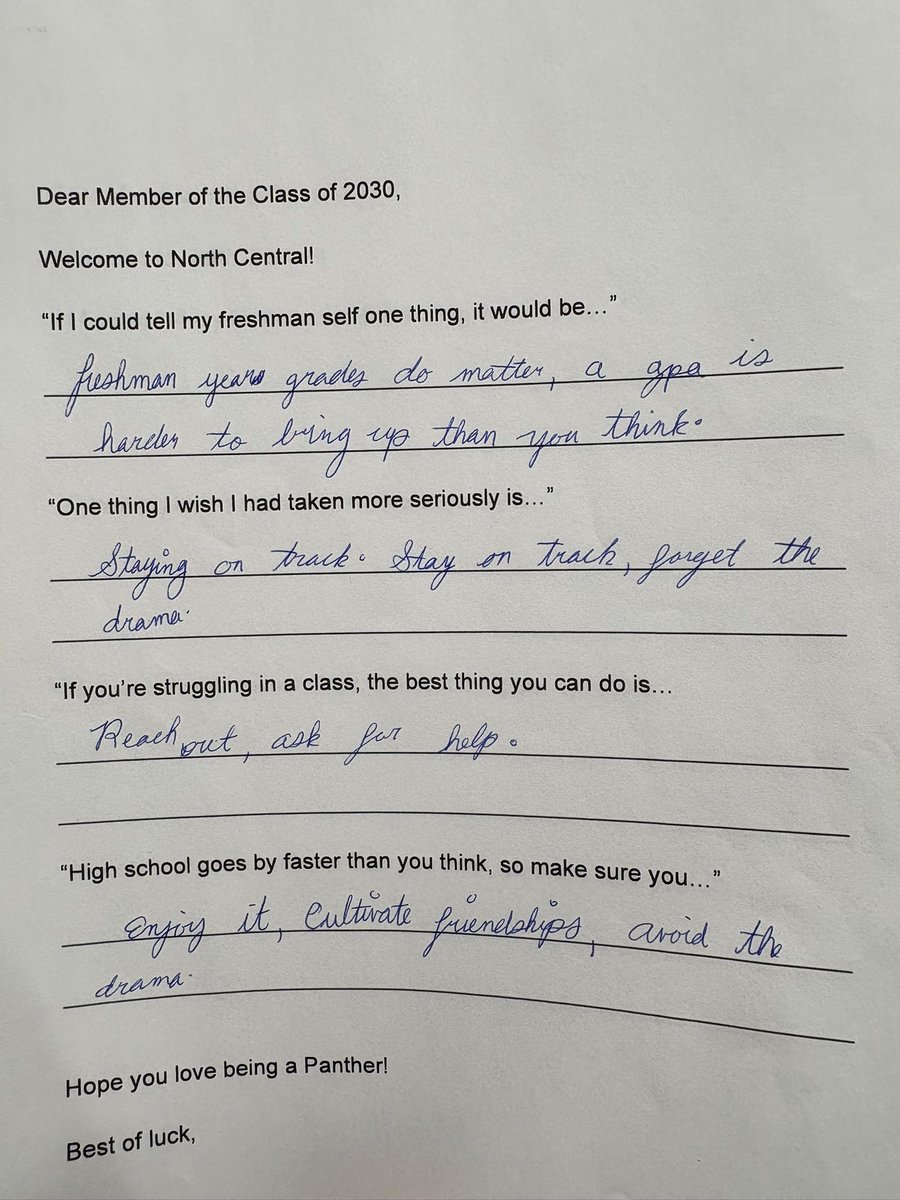 Dear Member of the Class of 2030,
Welcome to North Central!
“If I could tell my freshman self one thing, it would be…”
freshman years grades do matter, a gpa is
harder to bring up than you think.
“One thing I wish I had taken more seriously is…”
Staying on track. Stay on track, forget the
drama.
“If you’re struggling in a class, the best thing you can do is…
Reach out, ask for help.
“High school goes by faster than you think, so make sure you…”
Enjoy it, Cultivate friendships, avoid the
drama.
Hope you love being a Panther!
Best of luck,